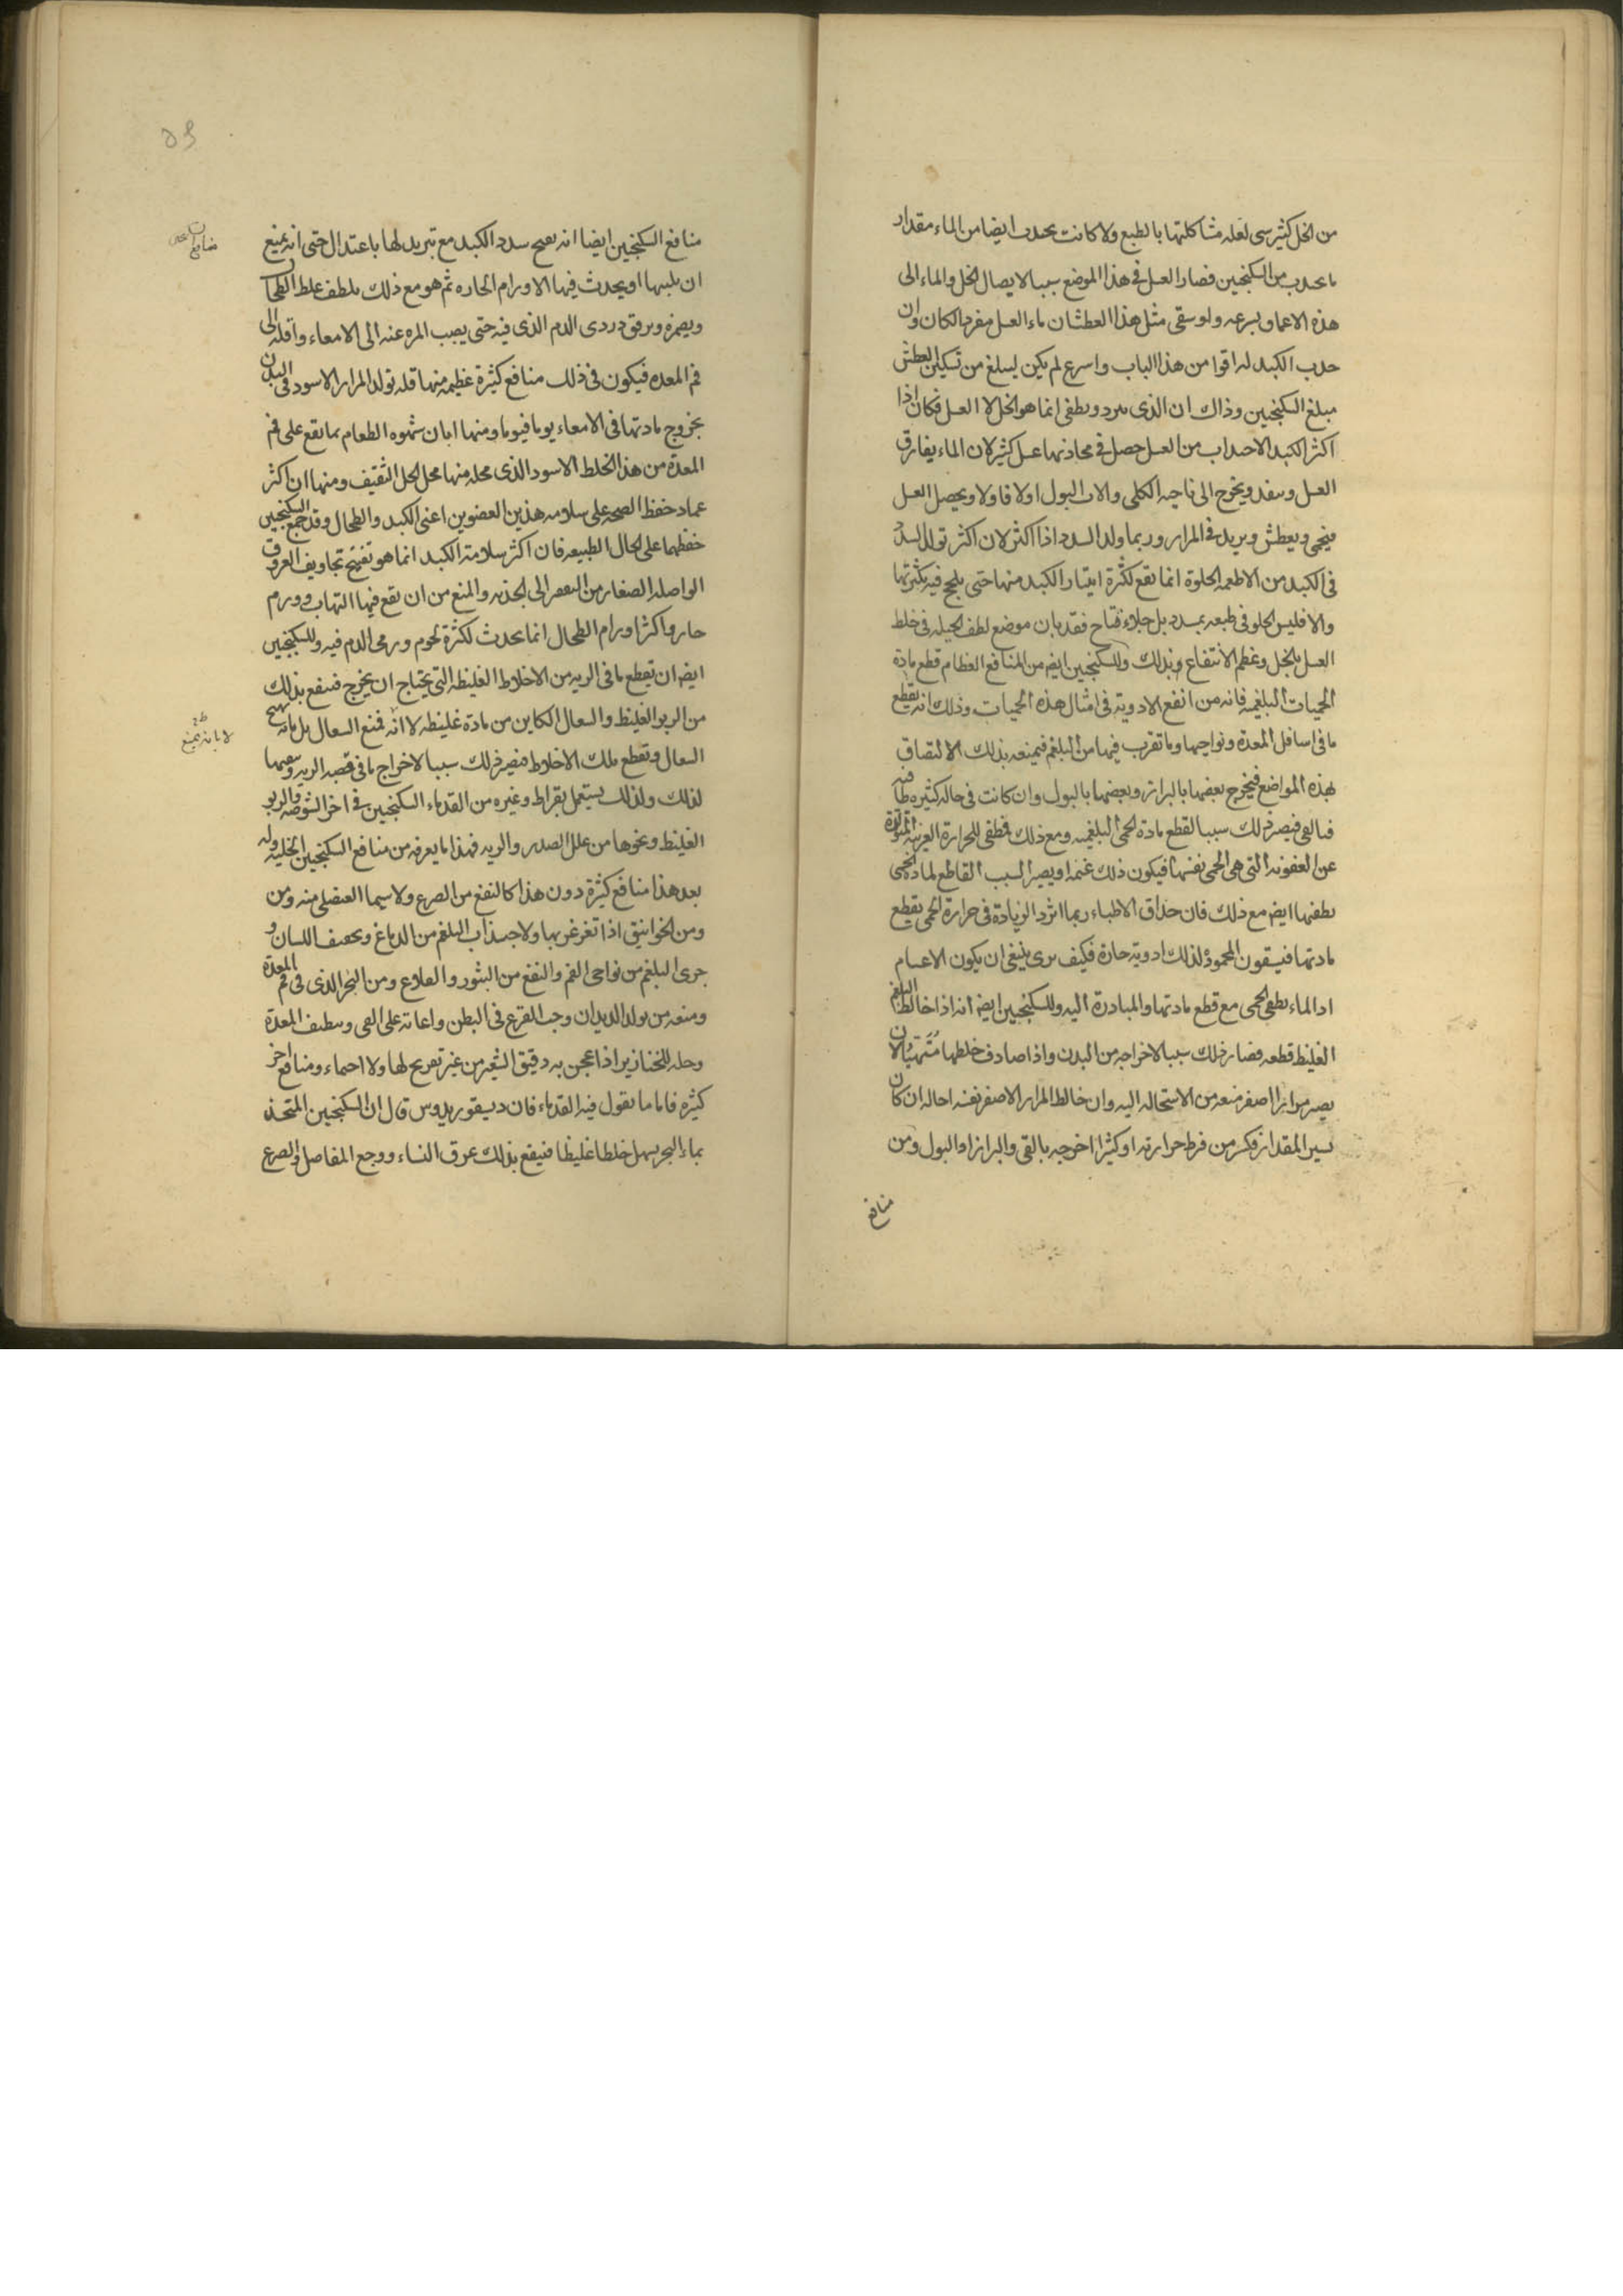 من الخل كثير سى لعله مشاكلتها بالطبع ولا كانت بحدب ايضا من الماء مقدار
ما بحدب من السكنجبين فصار العسل فى هذا الموضع سببا لايصال الخل والماء الى
هذه الاعماق بسرعه ولو سقى مثل هذا العطشان ماء العسل مفردا لكان وان
حدب الكبد له اقوا من هذا الباب واسرع لم يكن ليبلغ من تسكين العطش
مبلغ السكنجبين وذاك ان الذى ىبرد ويطفى انما هو الخل لا العسل فكان اذا
اكثر الكبد الاجداب من العسل حصل فى محادتها عسل كثير لان الماء يفارق
العسل وىنفد ويخرج الى ناحيه الكلى والات البول اولا فاولا ويحصل العسل
فيحمى ويعطش ويزيد فى المرار وربما ولد السدد اذا اكثر لان اكثر تولد السدد
فى الكبد من الاطعمه الحلوة انما تقع لكثرة امتيار الكبد منها حتى يلحج فيه بكثرتها
والا فليس الحلو فى طبعه بمسدد بل جلاء فتاح فقد بان موضع لطف الحيله فى خلط
العسل بالخل وعظم الانتفاع بذلك وللسكنجبين ايضا من المنافع العظام قطع مادة
الحميات البلغميه فانه من انفع الادوية فى امثال هذه الحميات وذلك انه يقطع
ما فى اسافل المعدة ونواحيها وما تقرب فيها من البلغم فيمنعه بذلك الالتصاق
بهذه المواضع فيخرج بعضها بالبراز وبعضها بالبول وان كانت فى حاله كثيره طافيه
فبالقى فيصير ذلك سببا لقطع مادة الحمى البلغميه ومع ذلك فطفى للحرارة الغريبه المتولدة
عن العفونه التى هى الحمى نفسها فيكون ذلك غنما ويصير السبب القاطع لمادة الحمى
يطفيها ايضا مع ذلك فان حذاق الاطباء ربما اثروا الزيادة فى حرارة الحمى بقطع
مادتها فيسقون المحموم لذلك ادوية حارة فكيف ىرى ينبغى ان يكون الاعىىام
اد الماء يطفى الحمى مع قطع مادتها والمبادرة اليه وللسكنجبين ايضا انه اذا خالط البلغم
الغليظ قطعه فصار ذلك سببا لاخراجه من البدن واذا صادف خلطها متهيئا لان
يصير مرارا اصفر منعه من الاستحاله اليه وان خالط المرار الاصفر نفسه احاله ان كان
يسير المقدار فكسر من فرط حرارته او كثيرا اخرجه بالقى والبراز او البول ومن
منافع
منافع السكنجبين ايضا انه يفتح سدد الكبد مع تبريد لها باعتدال حتى انه يمنع
ان يلىها او يحدث فيها الاورام الحاره ثم هو مع ذلك يلطف غلظ الطحال
ويصمره ويرقق دردى الدم الذى فيه حتى يصب المره عنه الى الامعاء واقله الى
فم المعده فيكون فى ذلك منافع كثيرة عظيمه منها قله تولد المرار الاسود فى البدن
بخروج مادتها فى الامعاء يوما فيوما ومنها ابان شهوه الطعام بما يقع على فم
المعدة من هذا الخلط الاسود الذى محله منها محل الخل الثقيف ومنها ان اكثر
عماد حفظ الصحه على سلامه هذين العضوين اعنى الكبد والطحال وقد جمع السكنجبين
حفظهما على الحال الطبيعه فان اكثر سلامة الكبد انما هو تفتيح تجاويف العروق
الواصله الصغار من المقعر الى الحدبه والمنع من ان يقع فيها التهاب وورم
حار واكثر اورام الطحال انما يحدث لكثرة لحوم وردى الدم فيه وللسكنجبين
ايضا ان يقطع ما فى الريه من الاخلاط الغليظه التى يحتاج ان يخرج فينفع بذلك
من الربو الغليظ والسعال الكاين من مادة غليظه لا انه فمنع السعال بل بانه يهيج
السعال ويقطع تلك الاخلاط فيصير ذلك سببا لاخراج ما فى قصبه الريه وسعيها
لذلك ولذلك يستعمل بقراط وغيره من القدماء السكنجبين فى اخر الشوصه والربو
الغليظ ونحوها من علل الصدر والريه فهذا ما يعرفه من منافع السكنجبين الجليله وله
بعد هذا منافع كثيرة دون هذا كالنفع من الصرع ولا سيما العنصلى منه ومن
ومن الخوانيق اذا تغرغر بها ولاجتذاب البلغم من الدماغ وىخفف اللسان و
جرى البلغم من نواحى الفم والنفع من البثور والقلاع ومن البخر الذى فى فم المعدة
ومنعه من تولد الديدان وحب القرع فى البطن واعانته على القى وىنظيف المعدة
وحله للخنازير اذا عجن به دقيق الشعير من غير تقريح لها ولا احماء ومنافع اخر
كثيره فاما ما يقول فيه القدماء فان ديسقوريدوس قال ان السكنجبين المتخذ
بماء البحر يسهل خلطا غليظا فينفع بذلك عرق النساء ووجع المفاصل والصرع
لا بانه يمنع